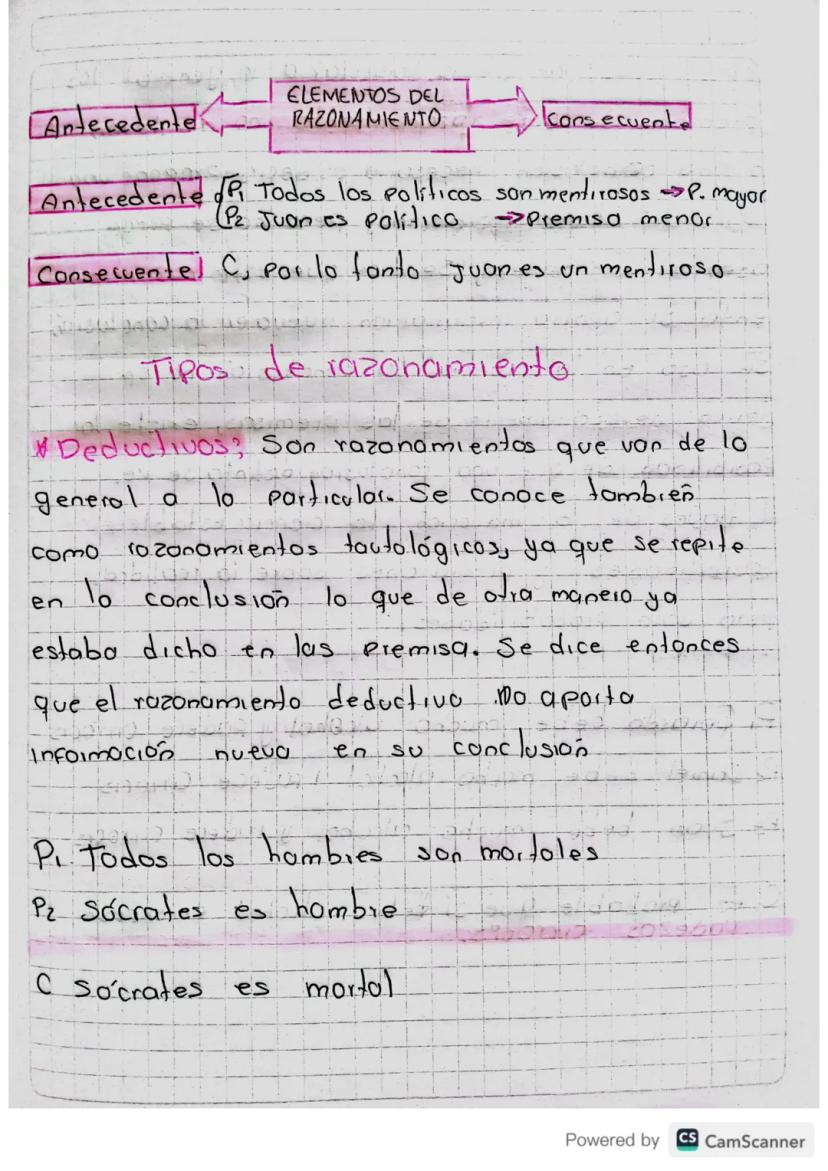 ELEMENTOS DEL
Antecedente RAZONAMIENTO consecuente
Antecedente P1 Todos los políticos son mentirosos → P. mayor
P2 Juan es político → Premisa menor
Consecuente C, por lo tanto Juan es un mentiroso
Tipos de razonamiento
* Deductivos; Son razonamientos que van de lo
general a lo particular. Se conoce también
como razonamientos tautológicos, ya que se repite
en lo conclusión lo que de otra manera ya
estaba dicho en las premisa. Se dice entonces
que el razonamiento deductivo no aporta
información nueva en su conclusión
P1 Todos los hombres son mortales
P2 Sócrates es hombre
C Sócrates es mortal
Powered by CS CamScanner